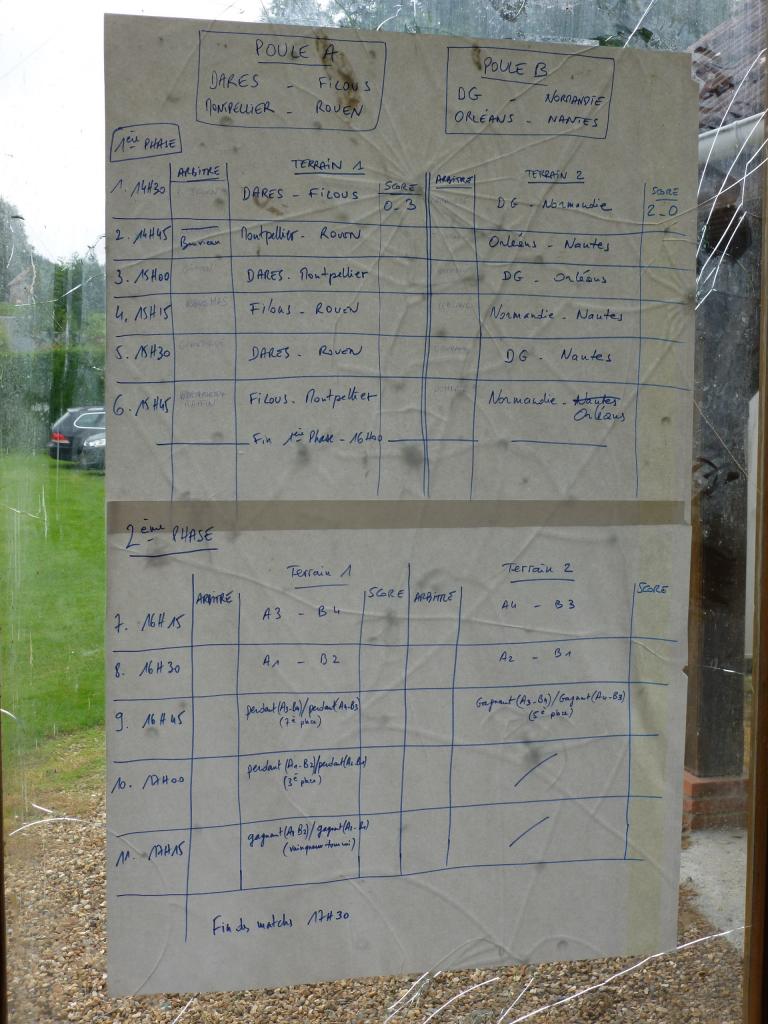 POULE A
DARES - FILOUS
MONTPELLIER - ROUEN
POULE B
DG - NORMANDIE
ORLÉANS - NANTES
1ère PHASE
ARBITRE TERRAIN 1 SCORE ARBITRE TERRAIN 2 SCORE
1. 14H30 DARES - FILOUS 0-3 DG - Normandie 2-0
2. 14H45 Montpellier - ROUEN Orléans - Nantes
3. 15H00 DARES - Montpellier DG - Orléans
4. 15H15 Filous - ROUEN Normandie - Nantes
5. 15H30 DARES - ROUEN DG - Nantes
6. 15H45 Filous - Montpellier Normandie - Nantes
Orléans
Fin 1ère Phase - 16H00
2ème PHASE
ARBITRE Terrain 1 SCORE ARBITRE Terrain 2 SCORE
7. 16H15 A3 - B4 A4 - B3
8. 16H30 A1 - B2 A2 - B1
9. 16H45 perdant (A3-B4)/perdant (A4-B3 Gagnant (A3-B4)/Gagnant (A4-B3)
(7è place) (5è place)
10. 17H00 perdant (A1-B2)/perdant (A2-B1)
(3è place)
11. 17H15 gagnant (A1 B2)/gagnant (A2-B1)
(vainqueur tournoi)
Fin des matchs 17H30